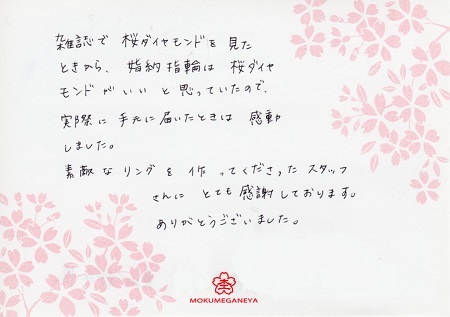 雑誌で 桜ダイヤモンドを 見た
ときから、婚納指輪は 桜ダイヤ
モンドが いい と 思っていたので、
実際に 手元に 届いたときは 感動
しました。
素敵な リング を 作 ってくださった スタッフ
さんに とても 感謝しております。
ありがとうございました。
MOKUMEGANEYA